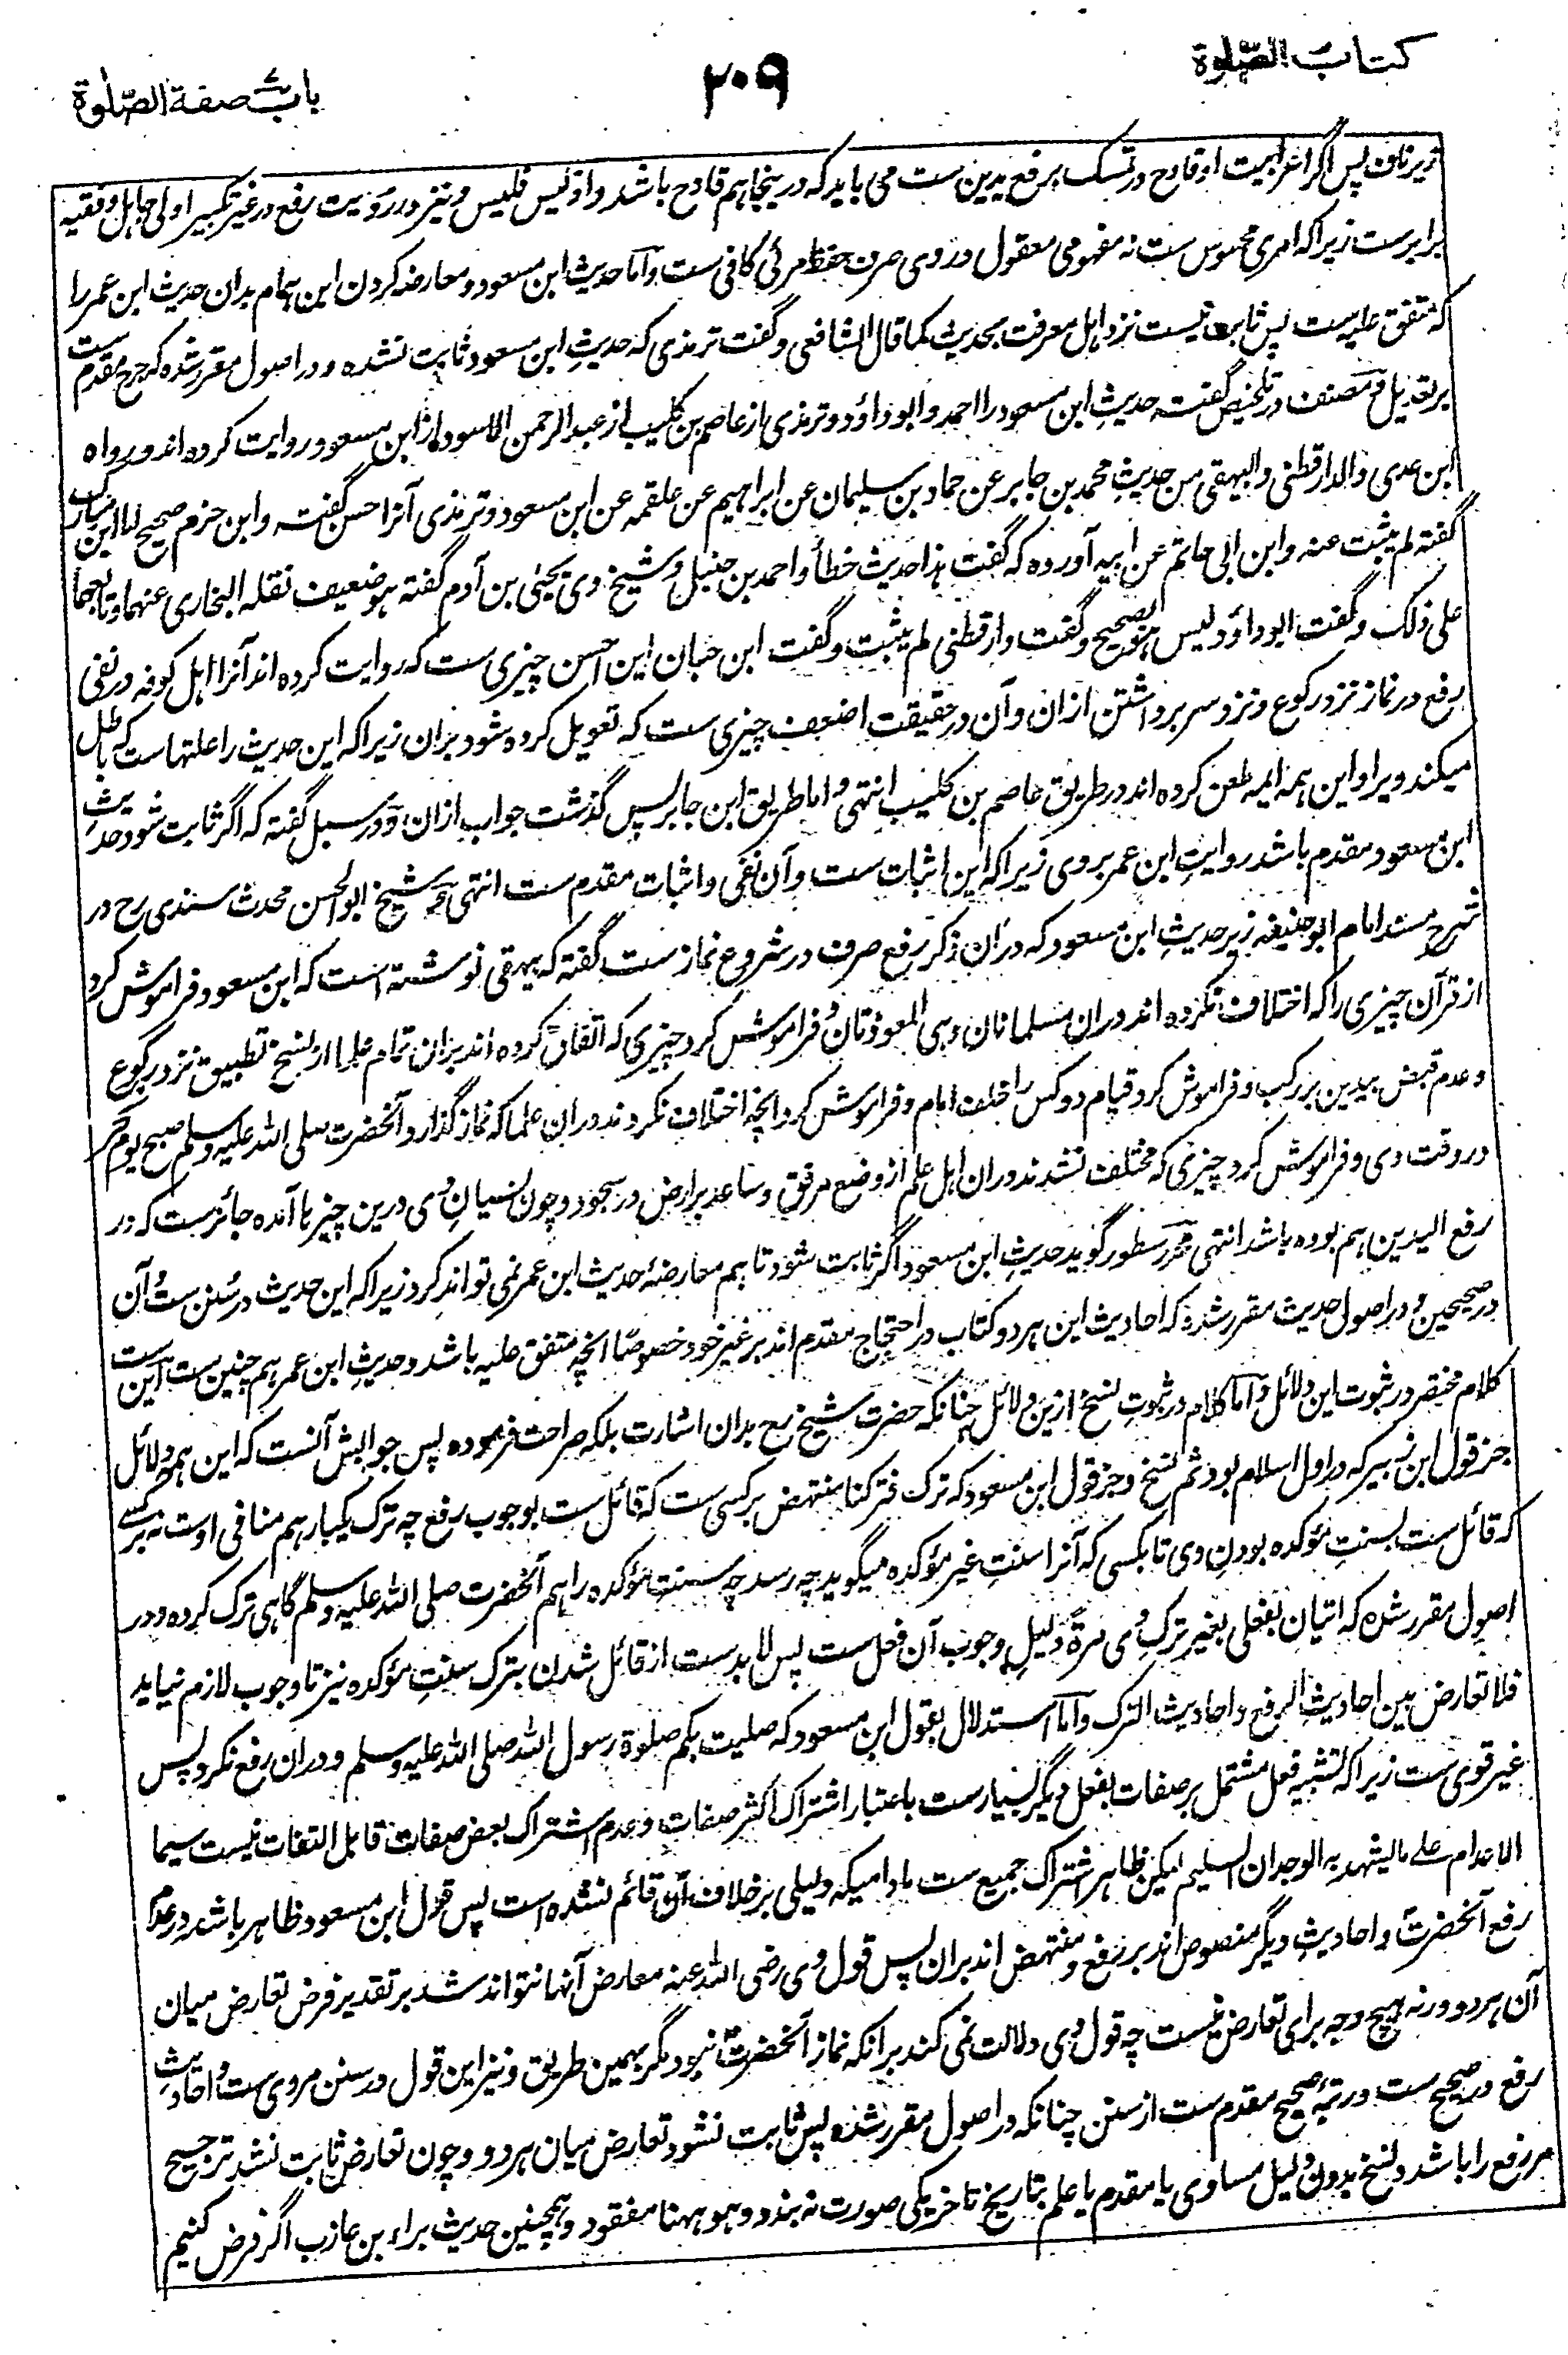 کتاب الصّلوة
۳۰۹
باب صفة الصّلوة
زیر ناف پس اگر اعرابیت او قادح در تمسک برفع یدین ست می باید که درینجا هم قادح باشد واذ لیس فلیس و نیز در رویت رفع در غیر تکبیر اولی جاهل و فقیه
برابرست زیرا که امری محسوس ست نه مفهومی معقول و در وی صرف حفظ مرئی کافی ست و اما حدیث ابن مسعود و معارضه کردن ابن همام بدان حدیث ابن عمر را
که متفق علیه ست پس ثابت نیست نزد اهل معرفت بحدیث کما قال الشافعی و گفت ترمذی که حدیث ابن مسعود ثابت نشده و در اصول مقرر شده که جرح مقدم ست
بر تعدیل و مصنف در تلخیص گفته حدیث ابن مسعود را احمد و ابو داؤد و ترمذی از عاصم بن کلیب از عبد الرحمن الاسود از ابن مسعود روایت کرده اند و رواه
ابن عدی والدارقطنی والبیهقی من حدیث محمد بن جابر عن حماد بن سلیمان عن ابراهیم عن علقمه عن ابن مسعود و ترمذی آنرا حسن گفته و ابن حزم صحیح اما ابن مبارک
گفته لم یثبت عنه و ابن ابی حاتم عن ابیه آورده که گفت هذا حدیث خطأ و احمد بن حنبل و شیخ وی یحیی بن آدم گفته هو ضعیف نقله البخاری عنهما و تابعهما
علی ذلک و گفت ابو داؤد لیس هو بصحیح و گفت دارقطنی لم یثبت و گفت ابن حبان این احسن چیزی ست که روایت کرده اند آنرا اهل کوفه در نفی
رفع در نماز نزد رکوع و نزد سر برداشتن ازان و آن در حقیقت اضعف چیزی ست که تعویل کرده شود بران زیرا که این حدیث را علتهاست که باطل
میکند ویرا و این همه ایمه طعن کرده اند در طریق عاصم بن کلیب انتهی و اما طریق ابن جابر پس گذشت جواب ازان و در سبل گفته که اگر ثابت شود حدیث
ابن مسعود مقدم باشد روایت ابن عمر بر وی زیرا که این اثبات ست و آن نفی و اثبات مقدم ست انتهی و شیخ ابو الحسن محدث سندی رح در
شرح مسند امام ابو حنیفه زیر حدیث ابن مسعود که دران ذکر رفع صرف در شروع نماز ست گفته که بیهقی نوشته است که ابن مسعود فراموش کرد
از قرآن چیزی را که اختلاف نکرده اند دران مسلمانان وهی المعوذتان و فراموش کرد چیزی که اتفاق کرده اند بران تمام علما از نسخ تطبیق نزد رکوع
و عدم قبض بیدین بر رکب و فراموش کرد قیام دو کس را خلف امام و فراموش کرد انچه اختلاف نکردند دران علما که نماز گذارد آنحضرت صلی الله علیه وسلم صبح یوم نحر
در وقت وی و فراموش کرد چیزی که مختلف نشدند دران اهل علم از وضع مرفق و ساعد بر ارض در سجود و چون نسیان وی درین چیزها آمده جائز ست که در
رفع الیدین هم بوده باشد انتهی محرر سطور گوید حدیث ابن مسعود اگر ثابت شود تا هم معارضهٔ حدیث ابن عمر نمی تواند کرد زیرا که این حدیث در سنن ست و آن
در صحیحین و در اصول حدیث مقرر شده که احادیث این هر دو کتاب در احتجاج مقدم اند بر غیر خود خصوصا انچه متفق علیه باشد و حدیث ابن عمر هم چنین ست این ست
کلام مختصر در ثبوت این دلائل و اما کلام در ثبوت نسخ ازین دلائل چنانکه حضرت شیخ رح بدان اشارت بلکه صراحت فرموده پس جوابش آنست که این همه دلائل
جز قول ابن زبیر که در اول اسلام بود ثم نسخ و جز قول ابن مسعود که ترک فترکنا منتهض بر کسی ست که قائل ست بوجوب رفع چه ترک یکبار هم منافی اوست نه بر کسے
که قائل ست بسنت مؤکده بودن وی تا بکسی که آنرا سنت غیر مؤکده میگوید چه رسد چه سنت مؤکده را هم آنحضرت صلی الله علیه وسلم گاهی ترک کرده و در
اصول مقرر شده که اتیان بفعلی بغیر ترک وی مرةً دلیل وجوب آن فعل ست پس لا بدست از قائل شدن بترک سنت مؤکده نیز تا وجوب لازم نیاید
فلا تعارض بین احادیث الرفع و احادیث الترک و اما استدلال بقول ابن مسعود که صلیت بکم صلوة رسول الله صلی الله علیه وسلم و دران رفع نکرد پس
غیر قوی ست زیرا که تشبیه فعل مشتمل بر صفات بفعل دیگر بسیارست باعتبار اشتراک اکثر صفات و عدم اشتراک بعض صفات قابل التفات نیست سیما
الاعدام علے ما یشهد به الوجدان السلیم لیکن ظاهر اشتراک جمیع ست مادامیکه دلیلی بر خلاف آن قائم نشده است پس قول ابن مسعود ظاهر باشد در عدم
رفع آنحضرت و احادیث دیگر منصوص اند بر رفع و منتهض اند بران پس قول وی رضی الله عنه معارض آنها نتواند شد بر تقدیر فرض تعارض میان
آن هر دو ورنه هیچ وجه برای تعارض نیست چه قول وی دلالت نمی کند برانکه نماز آنحضرت نبود مگر بهمین طریق و نیز این قول در سنن مروی ست و احادیث
رفع در صحیح ست و رتبهٔ صحیح مقدم ست از سنن چنانکه در اصول مقرر شده پس ثابت نشود تعارض میان هر دو و چون تعارض ثابت نشد ترجیح
مر رفع را باشد و نسخ بدون دلیل مساوی یا مقدم یا علم بتاریخ تاخر یکی صورت نه بندد وهو ههنا مفقود و همچنین حدیث براء بن عازب اگر فرض کنیم